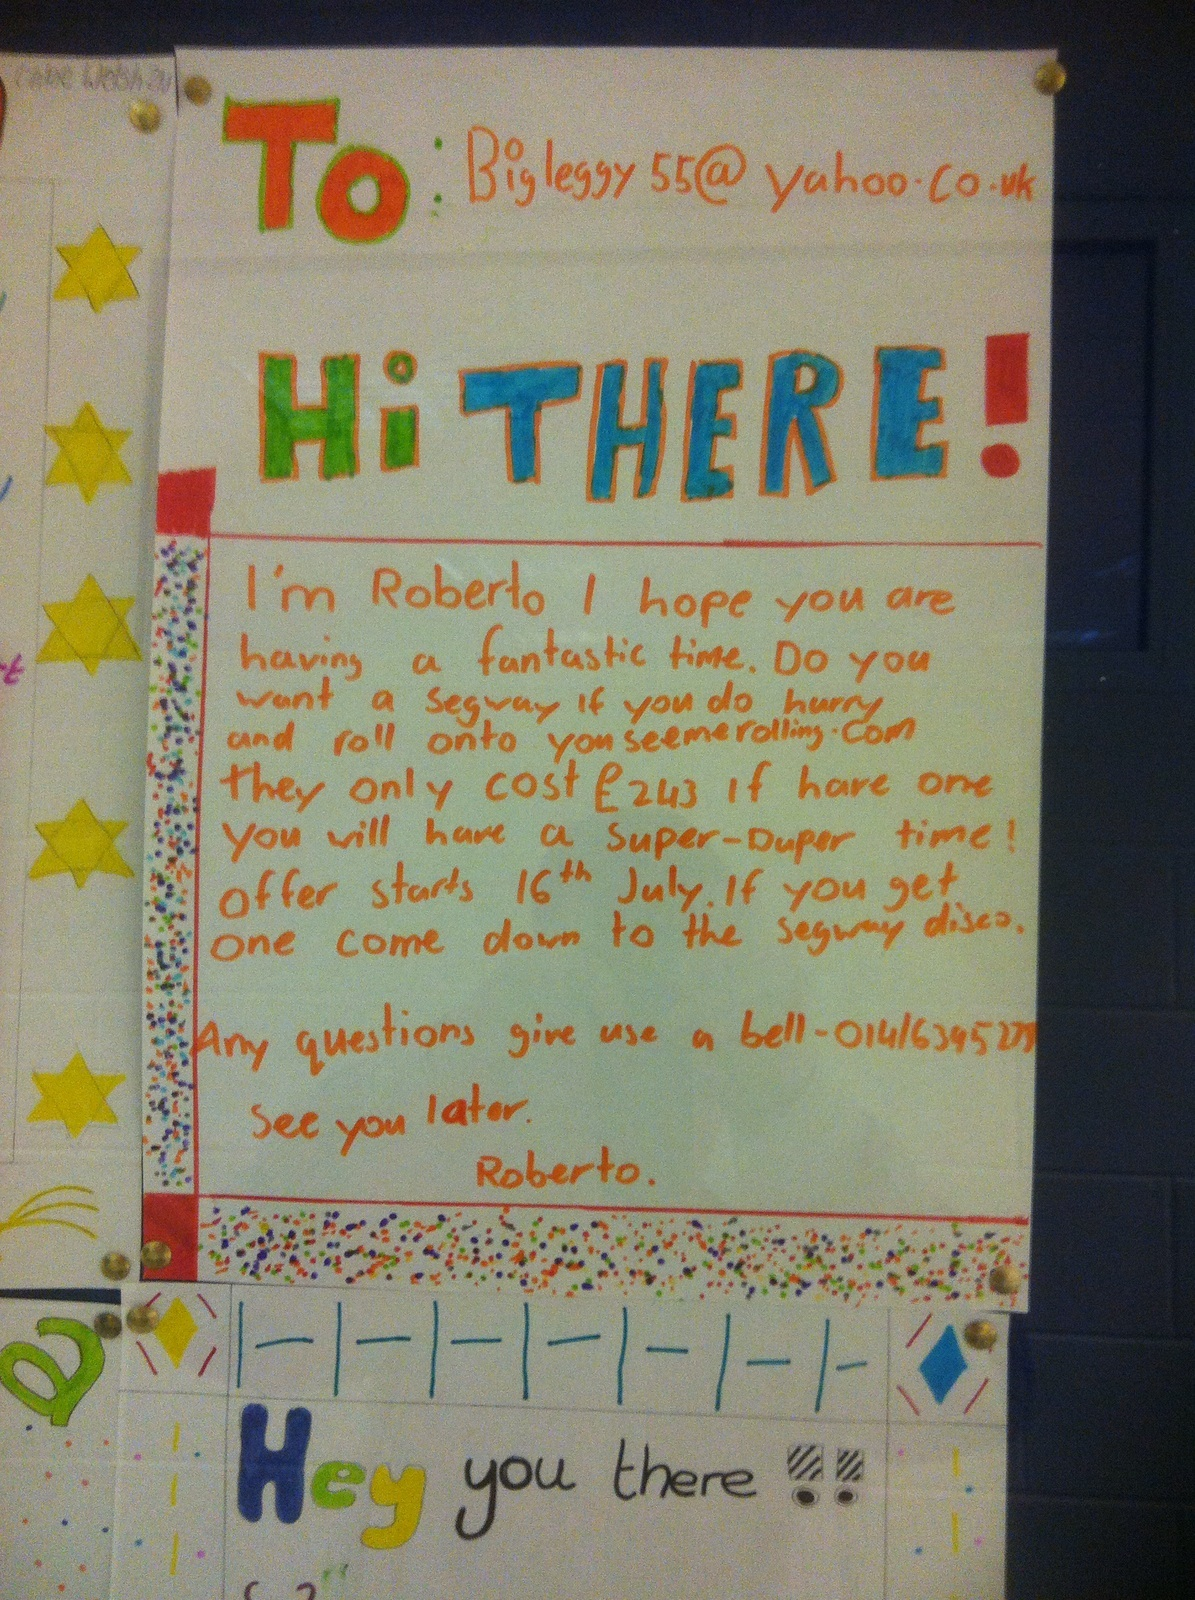 To: Bigleggy55@yahoo.co.uk
Hi THERE!
I'm Roberto I hope you are
having a fantastic time. Do you
want a segway if you do hurry
and roll onto youseemerolling.com
they only cost £243 if have one
you will have a super-Duper time!
offer starts 16th July. If you get
one come down to the segway disco.
Any questions give use a bell-
See you later.
Roberto.
Hey you there !!